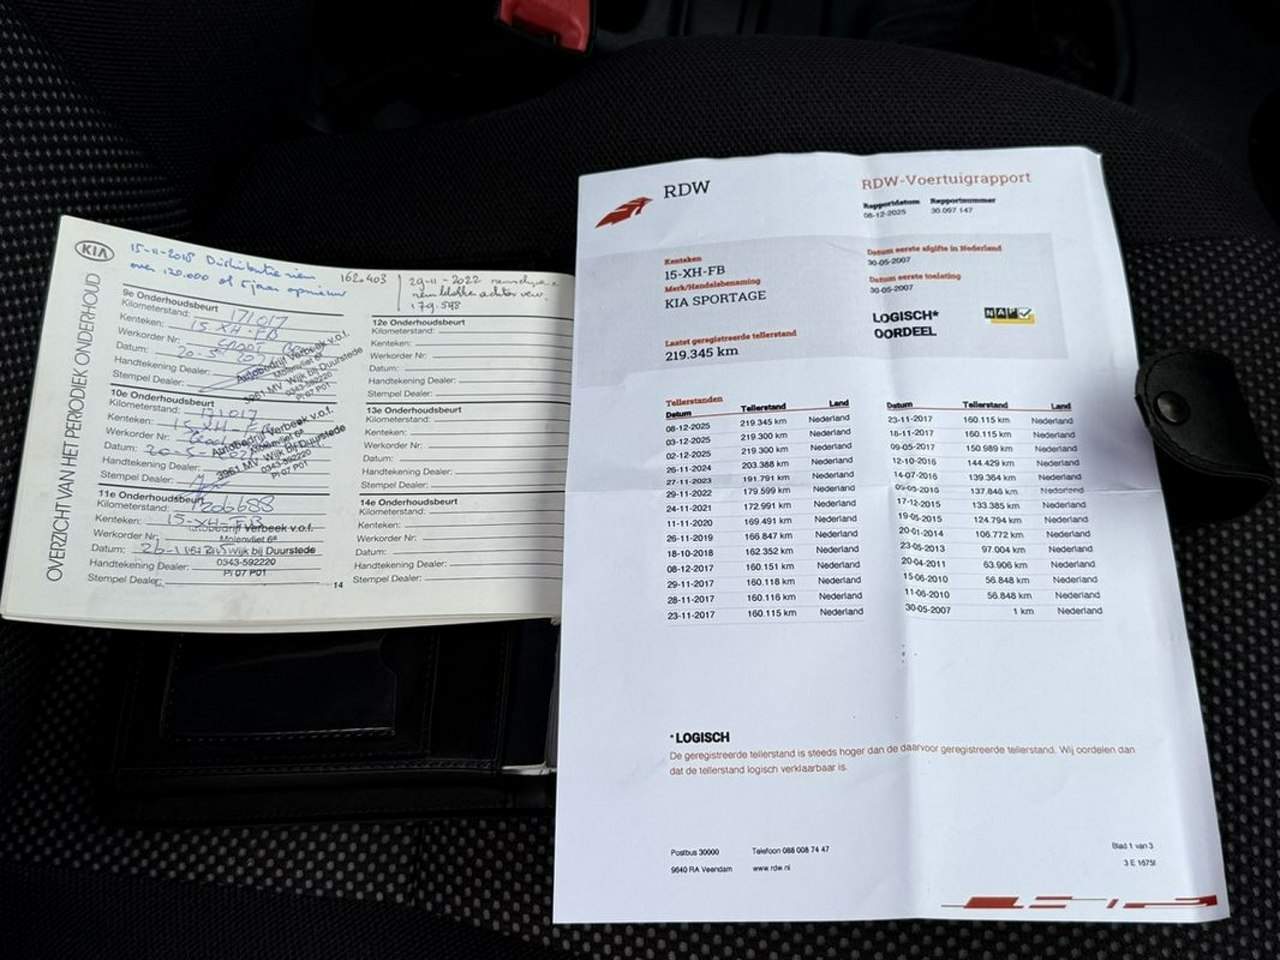 KIA
15-11-2018 Distributie riem
over 120.000 of 5 jaar opnieuw
162.403
29-11-2022
remblokken achter
179.598
OVERZICHT VAN HET PERIODIEK ONDERHOUD
9e Onderhoudsbeurt
Kilometerstand: 171017
Kenteken: 15 XH-FB
Werkorder Nr: Groot
Datum: 20-5-
Handtekening Dealer:
Stempel Dealer:
Autobedrijf Verbeek v.o.f.
Molenvliet 6ª
3961 MV Wijk bij Duurstede
0343-592220
PI 07 P01
10e Onderhoudsbeurt
Kilometerstand: 171017
Kenteken: 15-XH-FB
Werkorder Nr:
Datum: 20-5-
Handtekening Dealer:
Stempel Dealer:
Autobedrijf Verbeek v.o.f.
Molenvliet 6ª
3961 MV Wijk bij Duurstede
0343-592220
PI 07 P01
11e Onderhoudsbeurt
Kilometerstand: 206688
Kenteken: 15-XH-FB
Werkorder Nr:
Datum:
Handtekening Dealer:
Stempel Dealer:
Autobedrijf Verbeek v.o.f.
Molenvliet 6ª
Wijk bij Duurstede
0343-592220
PI 07 P01
14
12e Onderhoudsbeurt
Kilometerstand:
Kenteken:
Werkorder Nr:
Datum:
Handtekening Dealer:
Stempel Dealer:
13e Onderhoudsbeurt
Kilometerstand:
Kenteken:
Werkorder Nr:
Datum:
Handtekening Dealer:
Stempel Dealer:
14e Onderhoudsbeurt
Kilometerstand:
Kenteken:
Werkorder Nr:
Datum:
Handtekening Dealer:
Stempel Dealer:
RDW
RDW-Voertuigrapport
Rapportdatum Rapportnummer
08-12-2025 30.097.147
Kenteken
15-XH-FB
Merk/Handelsbenaming
KIA SPORTAGE
Laatst geregistreerde tellerstand
219.345 km
Datum eerste afgifte in Nederland
30-05-2007
Datum eerste toelating
30-05-2007
LOGISCH*
OORDEEL
NAP
Tellerstanden
Datum Tellerstand Land
08-12-2025 219.345 km Nederland
03-12-2025 219.300 km Nederland
02-12-2025 219.300 km Nederland
26-11-2024 203.388 km Nederland
27-11-2023 191.791 km Nederland
29-11-2022 179.599 km Nederland
24-11-2021 172.991 km Nederland
11-11-2020 169.491 km Nederland
26-11-2019 166.847 km Nederland
18-10-2018 162.352 km Nederland
08-12-2017 160.151 km Nederland
29-11-2017 160.118 km Nederland
28-11-2017 160.116 km Nederland
23-11-2017 160.115 km Nederland
Datum Tellerstand Land
23-11-2017 160.115 km Nederland
18-11-2017 160.115 km Nederland
09-05-2017 150.989 km Nederland
12-10-2016 144.429 km Nederland
14-07-2016 139.364 km Nederland
09-05-2016 137.846 km Nederland
17-12-2015 133.385 km Nederland
19-05-2015 124.794 km Nederland
20-01-2014 106.772 km Nederland
23-05-2013 97.004 km Nederland
20-04-2011 63.906 km Nederland
15-06-2010 56.848 km Nederland
11-06-2010 56.848 km Nederland
30-05-2007 1 km Nederland
*LOGISCH
De geregistreerde tellerstand is steeds hoger dan de daarvoor geregistreerde tellerstand. Wij oordelen dan
dat de tellerstand logisch verklaarbaar is.
Postbus 30000 Telefoon 088 008 74 47
9640 RA Veendam www.rdw.nl
Blad 1 van 3
3 E 1675f